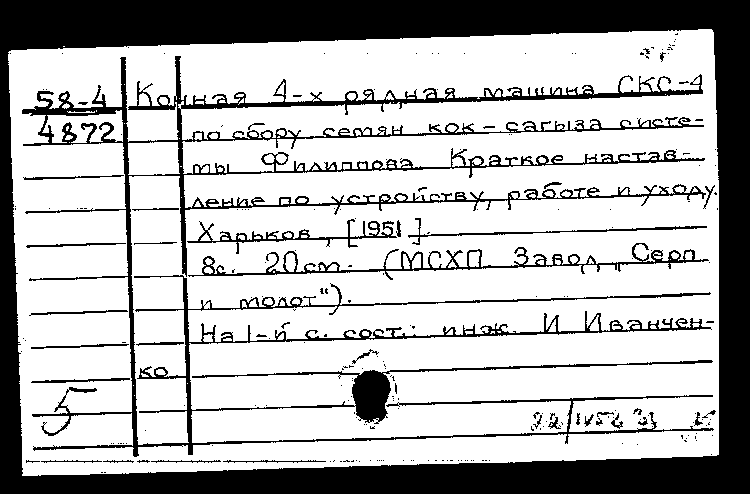 58-4 Конная 4-х рядная машина СКС-4
4872 по сбору семян кок-сагыза систе-
мы Филиппова. Краткое настав-
ление по устройству, работе и уходу.
Харьков, [1951].
8с. 20см. (МСХП Завод „Серп
и молот").
На 1-й с. сост.: инж. И Иванчен-
ко
5